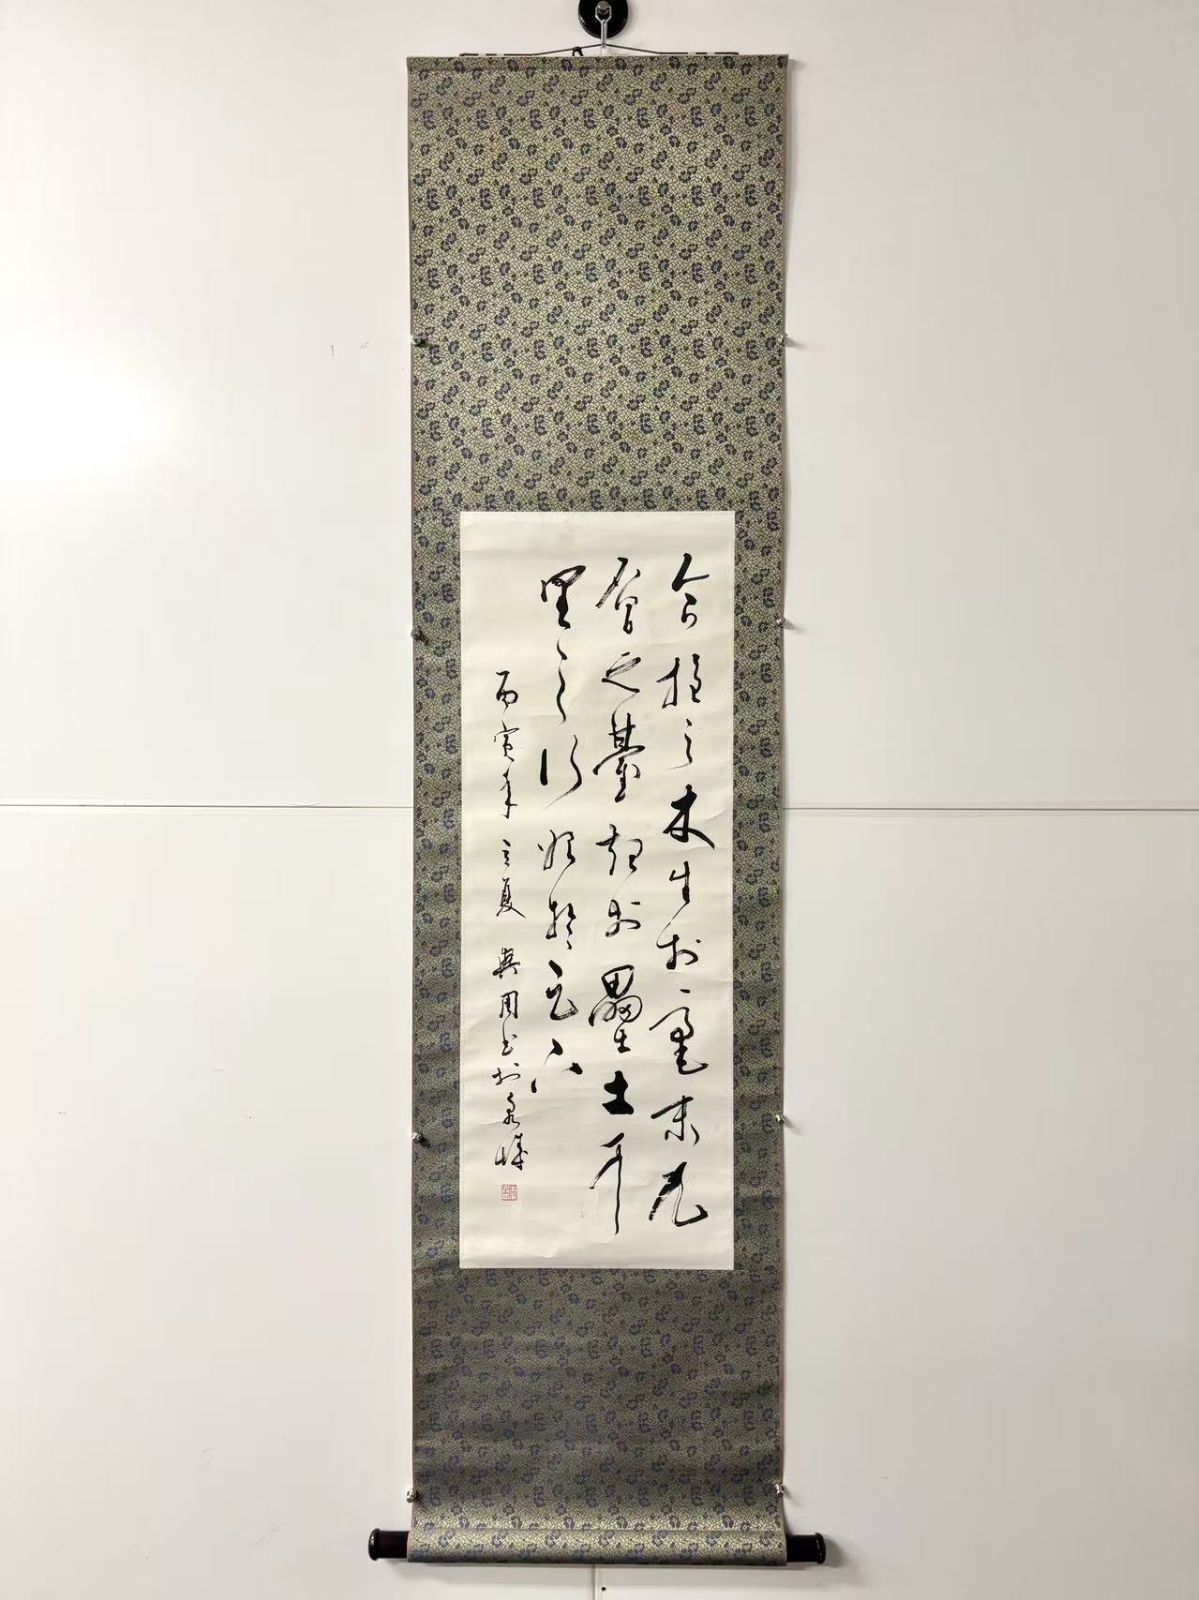 合抱之木生於毫末九
層之臺起於壘土千
里之行始於足下
丙寅年之夏 興周书於泉城